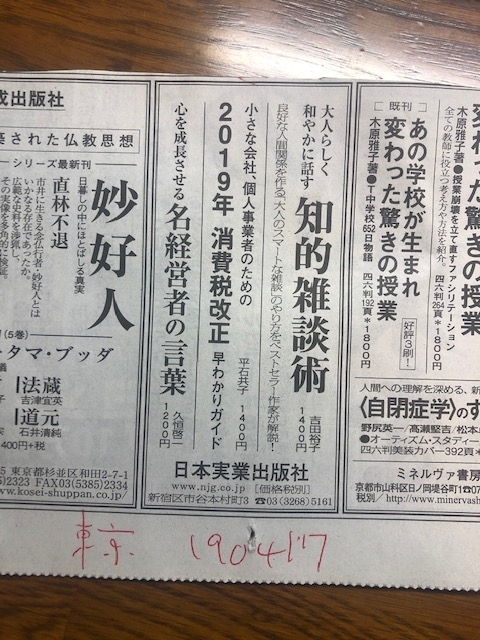 変わった驚きの授業
木原雅子著●授業崩壊を立て直すファシリテーション
全ての教師に役立つ考え方や方法を紹介。
四六判264頁*1800円
既刊
あの学校が生まれ
変わった驚きの授業
好評3刷!
木原雅子著●T中学校652日物語 四六判192頁*1800円
人間への理解を深める、新
〈自閉症学〉のす
野尻英一/髙瀬堅吉/松本
●オーティズム・スタディー
四六判美装カバー392頁*
ミネルヴァ書房
京都市山科区日ノ岡堤谷町1☎07
税別/http://www.minervash
大人らしく
和やかに話す
知的雑談術
良好な人間関係を作る、大人のスマートな雑談のやり方をベストセラー作家が解説!
吉田裕子
1400円
小さな会社、個人事業者のための
2019年 消費税改正 早わかりガイド
平石共子 1400円
心を成長させる 名経営者の言葉
久恒啓一
1200円
日本実業出版社
www.njg.co.jp [価格税別]
新宿区市谷本村町3 ☎03(3268)5161
成出版社
築された仏教思想
シリーズ最新刊
妙好人
日暮しの中にほとばしる真実
直林不退
市井に生きる念仏行者・妙好人とは
いかなる存在であったか。
広範な史料を渉猟し、
その実像を多角的に検証。
(5巻)
ータマ・ブッダ
法蔵
吉津宜英
道元
石井清純
400円+税
5 東京都杉並区和田2-7-1
)2323 FAX03(5385)2334
www.kosei-shuppan.co.jp/
東京 190417